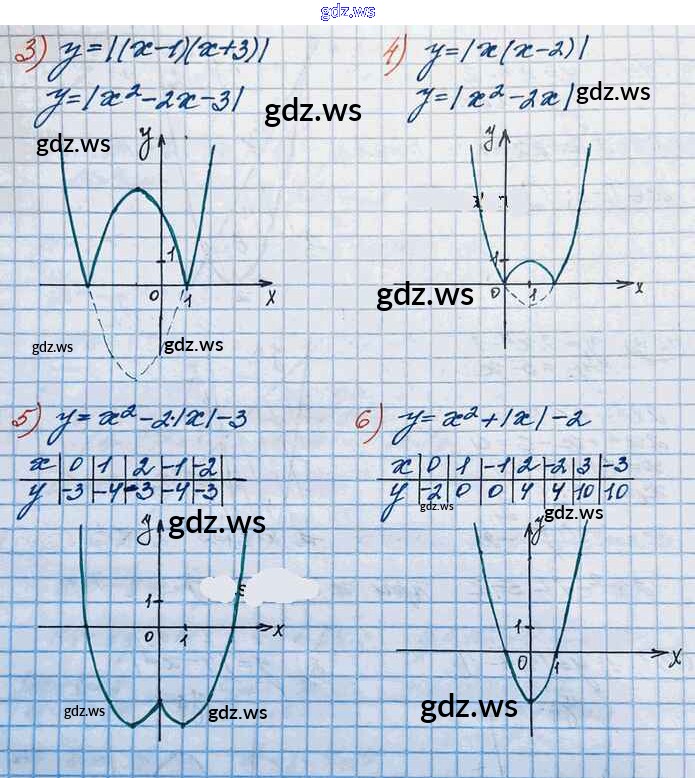 gdz.ws
3) y = |(x-1)(x+3)|
y = |x² - 2x - 3|
gdz.ws
gdz.ws
y
1
0
1
x
gdz.ws
gdz.ws
4) y = |x(x-2)|
y = |x² - 2x|
gdz.ws
y
1
0
1
x
gdz.ws
5) y = x² - 2·|x| - 3
x | 0 | 1 | 2 | -1 | -2 |
y | -3 | -4 | -3 | -4 | -3 |
gdz.ws
y
1
0
1
x
gdz.ws
gdz.ws
6) y = x² + |x| - 2
x | 0 | 1 | -1 | 2 | -2 | 3 | -3
y | -2 | 0 | 0 | 4 | 4 | 10 | 10
gdz.ws
gdz.ws
y
1
0
1
x
gdz.ws